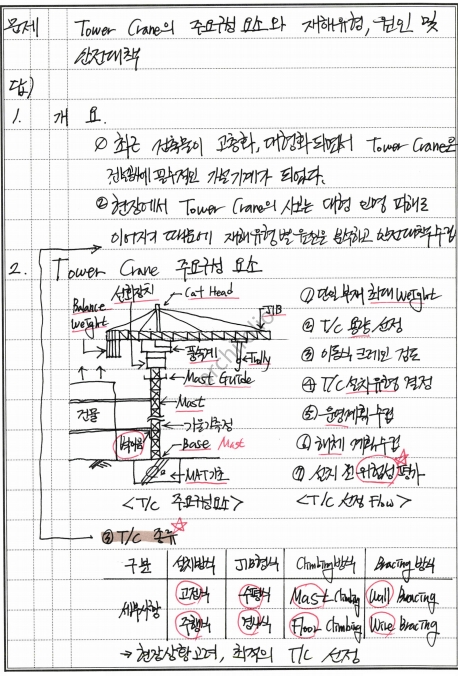 문제 Tower Crane의 주요구성 요소와 재해유형, 원인 및
안전대책
답)
1. 개 요.
① 최근 건축물이 고층화, 대형화 되면서 Tower Crane은
건설현장에 필수적인 가설기계가 되었다.
② 현장에서 Tower Crane의 사고는 대형 인명 피해로
이어지기 때문에 재해유형별 원인을 분석하고 안전대책 수립
2. Tower Crane 주요구성 요소
선회장치
Cat Head
Balance
Weight
JIB
풍속계
Trolly
Mast Guide
Mast
건물
가울기측정
Base Mast
MAT기초
<T/C 주요구성요소>
① 단위부재 최대 Weight
② T/C 용량 선정
③ 이동식 크레인 검토
④ T/C 설치유형 결정
⑤ 운영계획수립
⑥ 해체 계획수립
⑦ 설치 전 위험성평가
<T/C 선정 Flow>
③ T/C 종류
구분 설치방식 JIB형식 Climbing방식 Bracing방식
세부사항 고정식 수평식 Mast Climbing Wall Bracing
주행식 경사식 Floor Climbing Wire Bracing
→ 현장상황고려, 최적의 T/C 선정